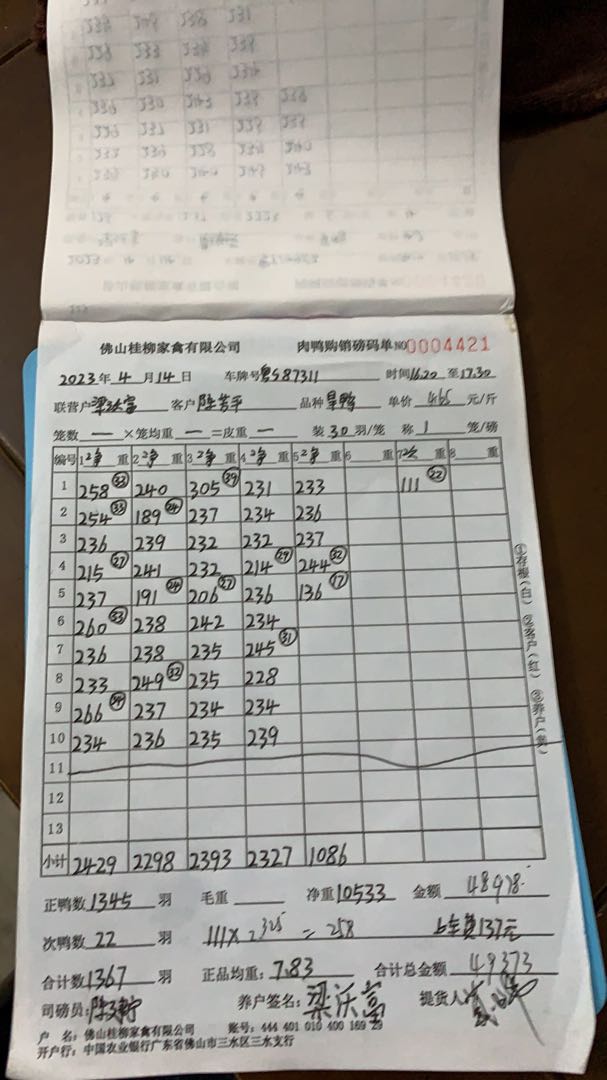 佛山桂柳家禽有限公司 肉鸭购销磅码单 NO 0004421
2023年4月14日 车牌号粤S87311 时间16.20至17.30
联营户梁沃富 客户 品种 单价4.65元/斤
笼数 — ×笼均重 — =皮重 — 装30羽/笼 称1笼/磅
编号 1净重 2净重 3净重 4净重 5净重 6 重 7次重 8 重
1 258(33) 240 305(39) 231 233 111(22)
2 254(33) 189(24) 237 234 236
3 236 239 232 232 237
4 215(27) 241 232 214(29) 244(32)
5 237 191(24) 206(27) 236 136(17)
6 260(33) 238 242 234
7 236 238 235 245(31)
8 233 249(32) 235 228
9 266(34) 237 234 234
10 234 236 235 239
11
12
13
小计 2429 2298 2393 2327 1086
正鸭数1345羽 毛重 净重10533 金额48978
次鸭数22羽 111×2325=258 上车费137元
合计数1367羽 正品均重:7.83 合计总金额49373
司磅员: 养户签名:梁沃富 提货人
户 名:佛山桂柳家禽有限公司 账号:444 401 010 400 169 29
开户行:中国农业银行广东省佛山市三水区三水支行
①存根(白) ②客户(红) ③养户(黄)